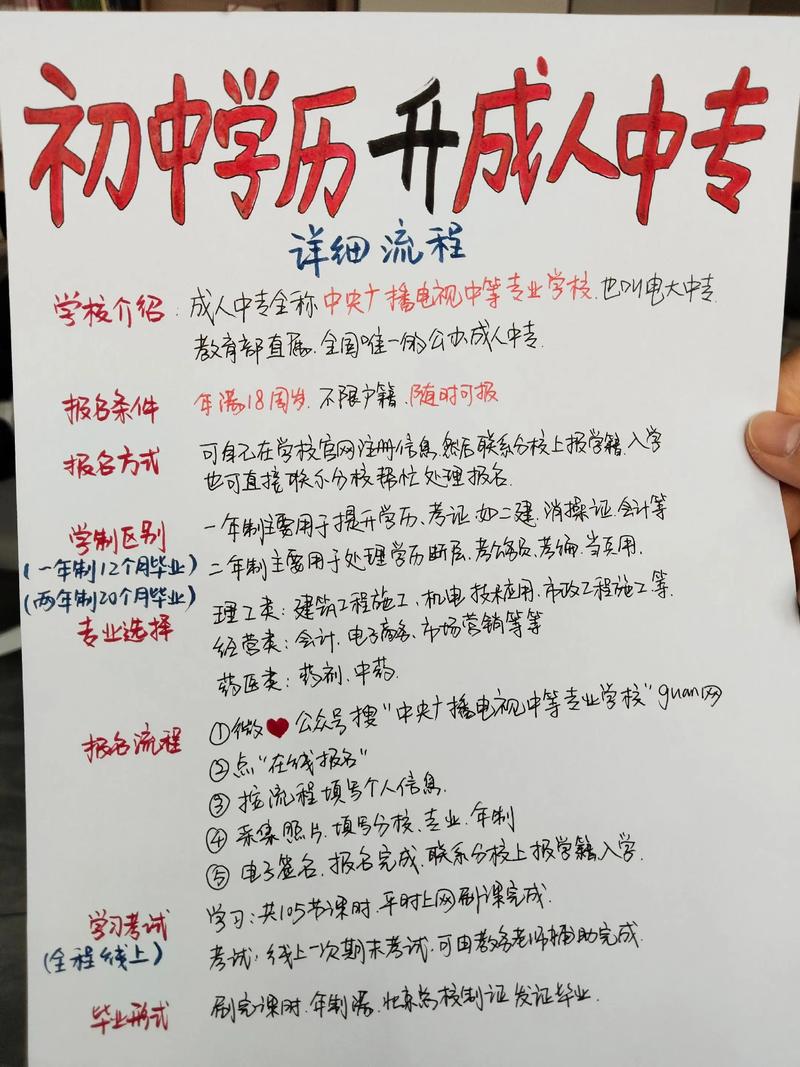 初中学历升成人中专
详细流程
学校介绍:成人中专全称中央广播电视中等专业学校.也叫电大中专
教育部直属.全国唯一的公办成人中专.
报名条件 年满18周岁.不限户籍.随时可报
报名方式 可自己在学校官网注册信息.然后联系分校上报学籍.入学
也可直接联系分校帮忙处理报名.
学制区别 一年制主要用于提升学历、考证.如二建.消操证.会计等
(一年制12个月毕业) 二年制主要用于处理学历断层.考公务员.考编.当兵用.
(两年制20个月毕业)
专业选择 理工类:建筑工程施工、机电技术应用.市政工程施工等.
经营类:会计.电子商务、市场营销等等
药医类:药剂.中药.
报名流程 ①微❤公众号搜"中央广播电视中等专业学校"guan网
②点"在线报名"
③按流程填写个人信息.
④采集照片.填写分校、专业.年制
⑤电子签名.报名完成.联系分校上报学籍.入学.
学习考试 学习:共105节课时.平时上网刷课完成.
(全程线上) 考试:线上一次期末考试.可由教务老师辅助完成.
毕业形式 刷完课时.年制满.北京总校制证发证毕业.